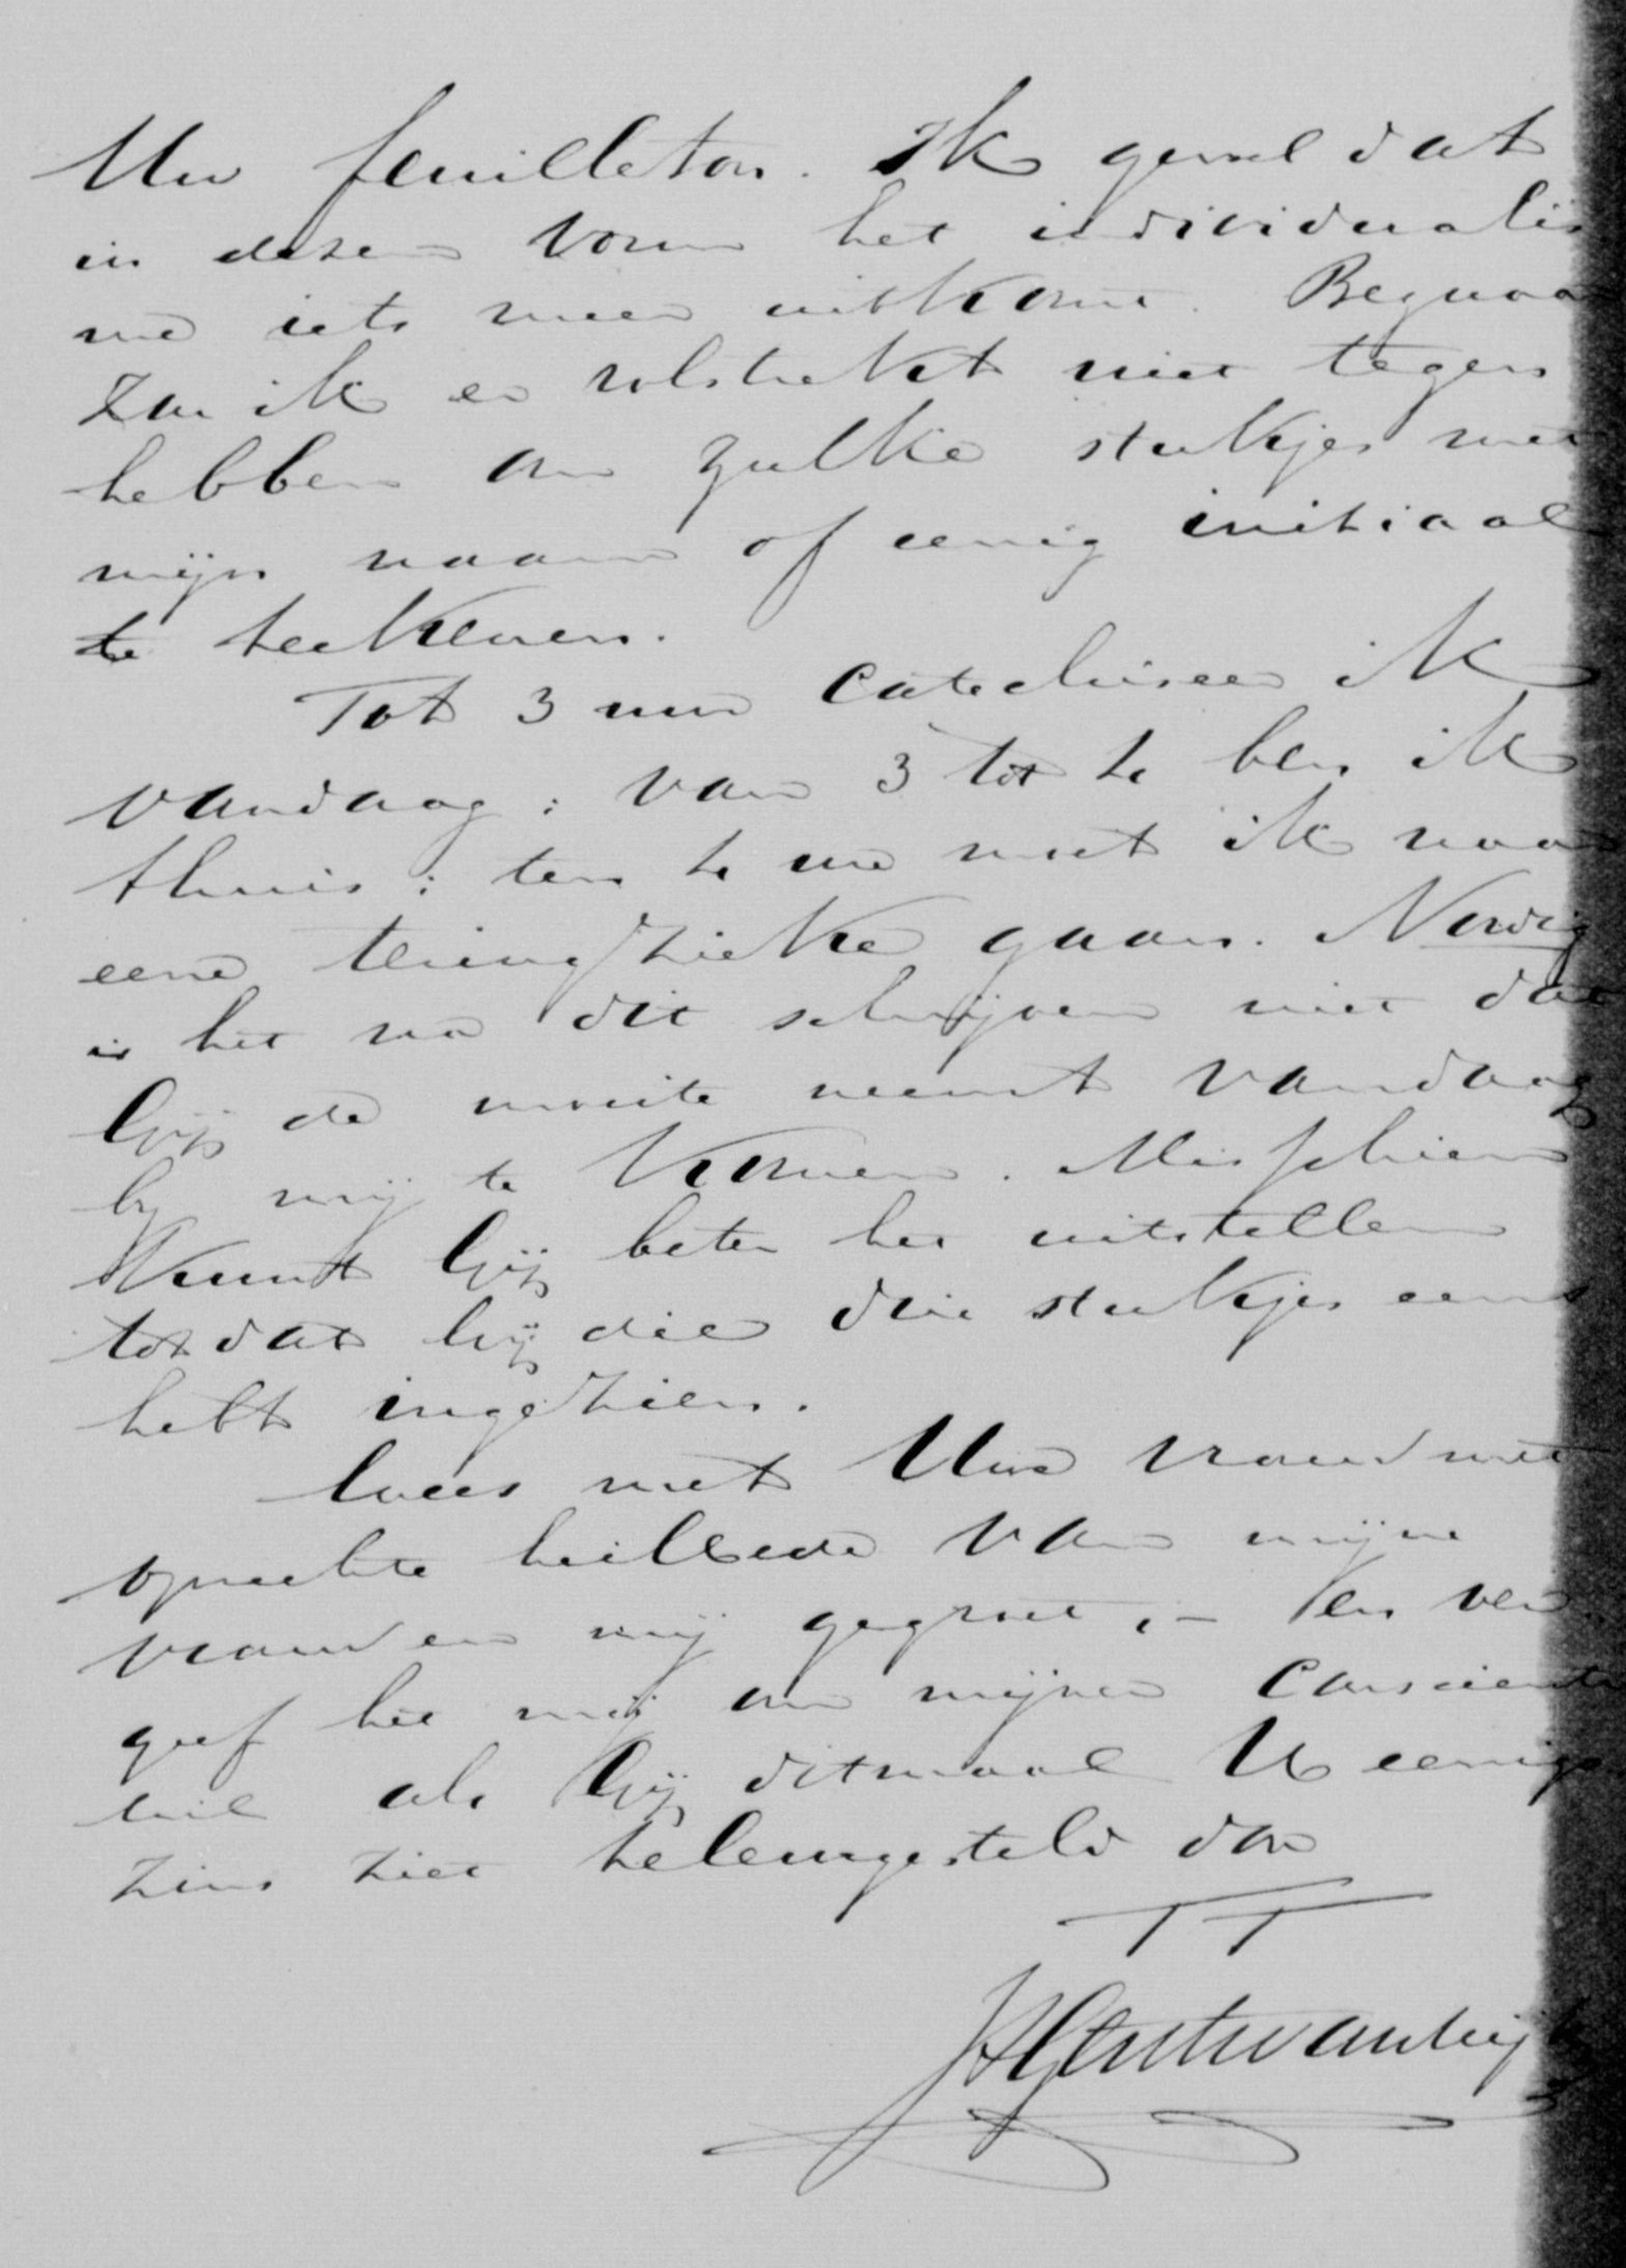 Uw feuilleton. Ik gevoel dat
in dezen vorm het individualis
me iets meer uitkomt. Bezwaar
zou ik er volstrekt niet tegen
hebben om zulke stukjes met
mijn naam of eenig initiaal
te teekenen.
Tot 3 uur catechiseer ik
vandaag; van 3 tot 4 ben ik
thuis; ten 4 ure moet ik naar
eene teringzieke gaan. Noodig
is het na dit schrijven niet dat
Gij de moeite neemt vandaag
by mij te komen. Misschien
kunt Gij beter het uitstellen
totdat Gij die drie stukjes eens
hebt ingezien.
Wees met Uwe vrouw met
oprechte heilbede van mijne
vrouw en mij gegroet, – en ver
geef het mij om mijner conscientie
wil als Gij ditmaal U eenigs
zins ziet teleurgesteld door
TT
JHGunning